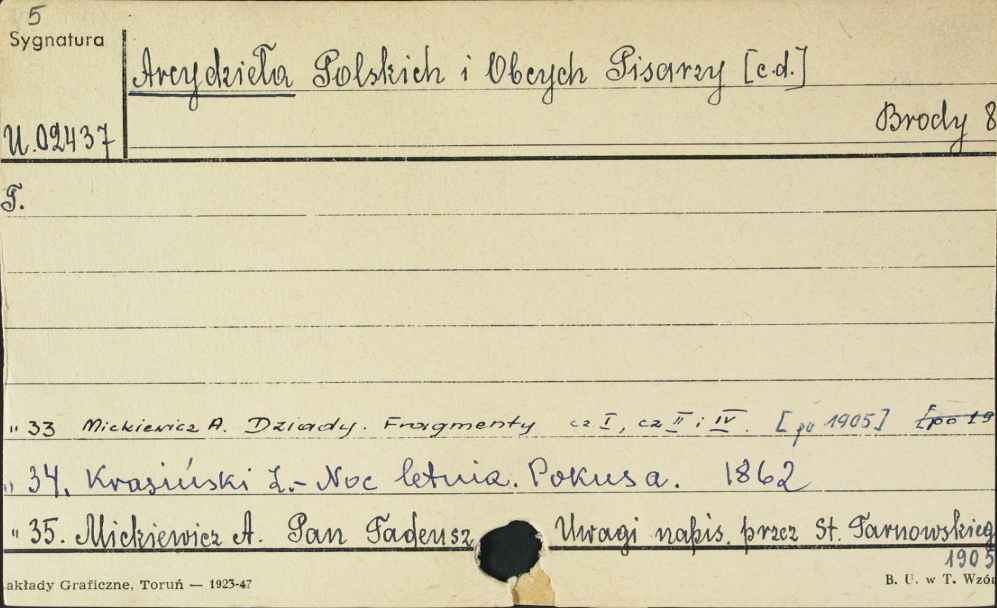 5
Sygnatura
Arcydzieła Polskich i Obcych Pisarzy [c.d.]
Brody 8
U.02437
T.
" 33 Mickiewicz A. Dziady. Fragmenty cz I, cz II i IV. [po 1905] [po 19
" 34. Krasiński Z.- Noc letnia. Pokusa. 1862
" 35. Mickiewicz A. Pan Tadeusz Uwagi napis. przez St. Tarnowskieg
1905
akłady Graficzne, Toruń — 1923-47
B. U. w T. Wzór